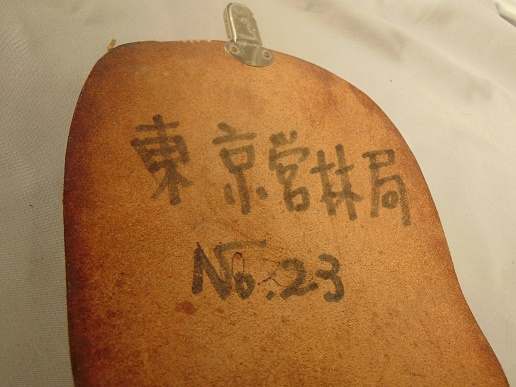 東京営林局
No.23